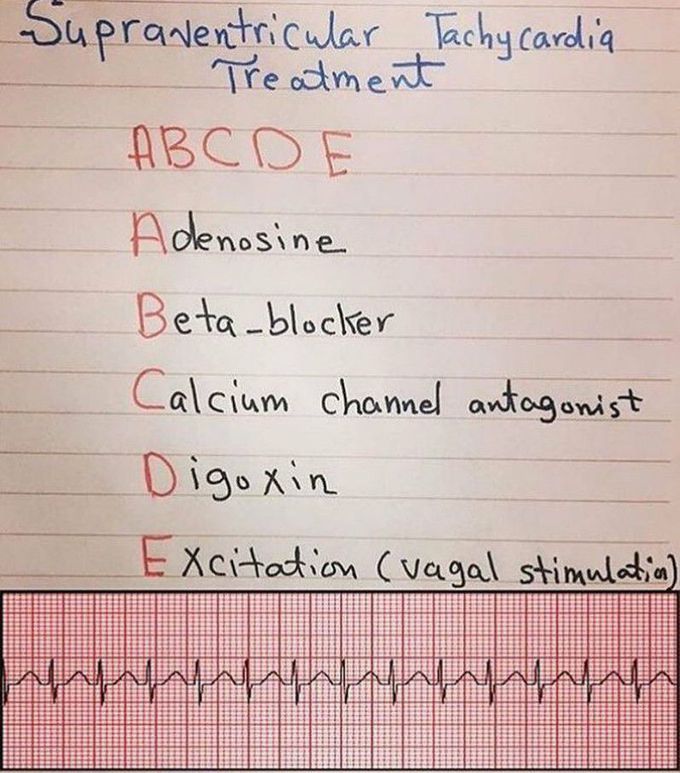 Supraventricular Tachycardia
Treatment
ABCDE
Adenosine
Beta-blocker
Calcium channel antagonist
Digoxin
Excitation (vagal stimulation)